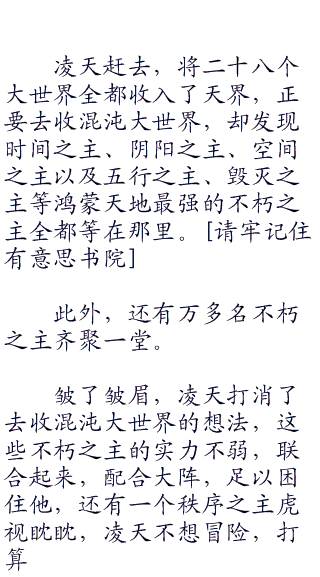 凌天赶去，将二十八个
大世界全都收入了天界，正
要去收混沌大世界，却发现
时间之主、阴阳之主、空间
之主以及五行之主、毁灭之
主等鸿蒙天地最强的不朽之
主全都等在那里。[请牢记住
有意思书院]
此外，还有万多名不朽
之主齐聚一堂。
皱了皱眉，凌天打消了
去收混沌大世界的想法，这
些不朽之主的实力不弱，联
合起来，配合大阵，足以困
住他，还有一个秩序之主虎
视眈眈，凌天不想冒险，打
算